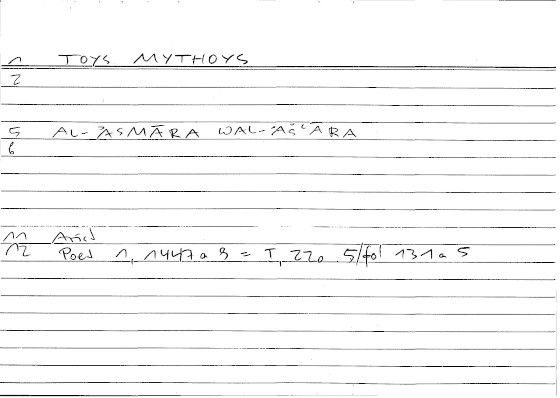 1 TOYS MYTHOYS
2
5 AL-ʾASMĀRA WAL-ʾAŠʿĀRA
6
11 Arist
12 Poet 1, 1447 a 9 = T, 220 5/fol 131 a 5